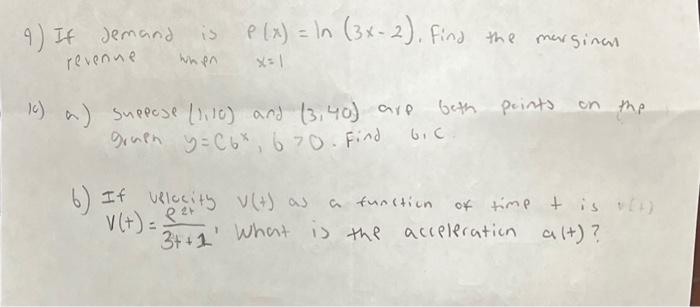 9) If demand is P(x) = ln (3x-2). Find the marginal
revenue when x=1
10) a) suppose (1,10) and (3,40) are both points on the
graph y=Cb^x, b>0. Find b, C.
b) If velocity V(t) as a function of time t is v(t)
V(t) = e^2t / 3t+1, What is the acceleration a(t)?